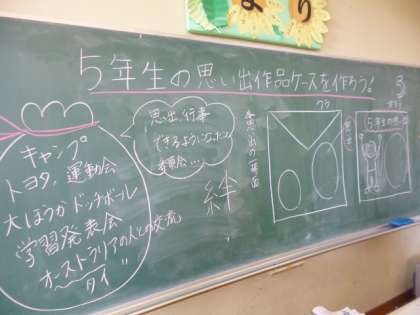 より
5年生の思い出作品ケースを作ろう!
キャンプ
トヨタ、運動会
大ほうかドッチボール
学習発表会
オーストラリアの人との交流
タイ〃
思い出、行事
できるようになったこと
絆
思い出の一場面
ウラ
オモテ
5年生の思